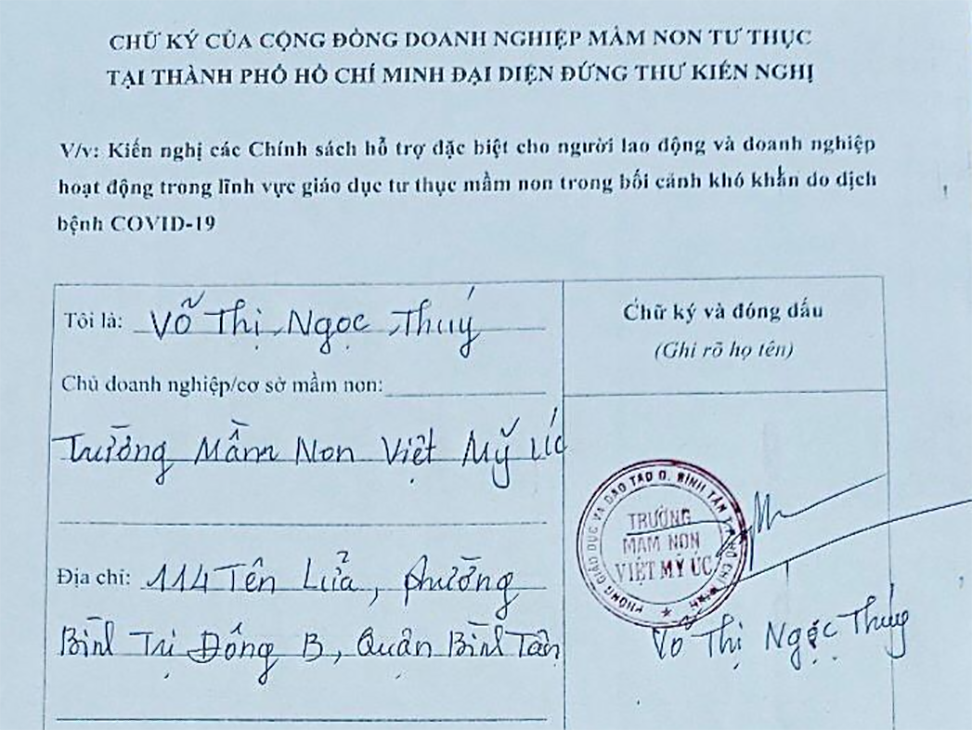 CHỮ KÝ CỦA CỘNG ĐỒNG DOANH NGHIỆP MẦM NON TƯ THỤC
TẠI THÀNH PHỐ HỒ CHÍ MINH ĐẠI DIỆN ĐỨNG THƯ KIẾN NGHỊ
V/v: Kiến nghị các Chính sách hỗ trợ đặc biệt cho người lao động và doanh nghiệp
hoạt động trong lĩnh vực giáo dục tư thục mầm non trong bối cảnh khó khăn do dịch
bệnh COVID-19
Tôi là: Võ Thị Ngọc Thúy
Chủ doanh nghiệp/cơ sở mầm non:
Trường Mầm Non Việt Mỹ Úc
Địa chỉ: 114 Tên Lửa, Phường
Bình Trị Đông B, Quận Bình Tân
Chữ ký và đóng dấu
(Ghi rõ họ tên)
PHÒNG GIÁO DỤC VÀ ĐÀO TẠO Q. BÌNH TÂN T.P HỒ CHÍ MINH
TRƯỜNG
MẦM NON
VIỆT MỸ ÚC
Võ Thị Ngọc Thúy